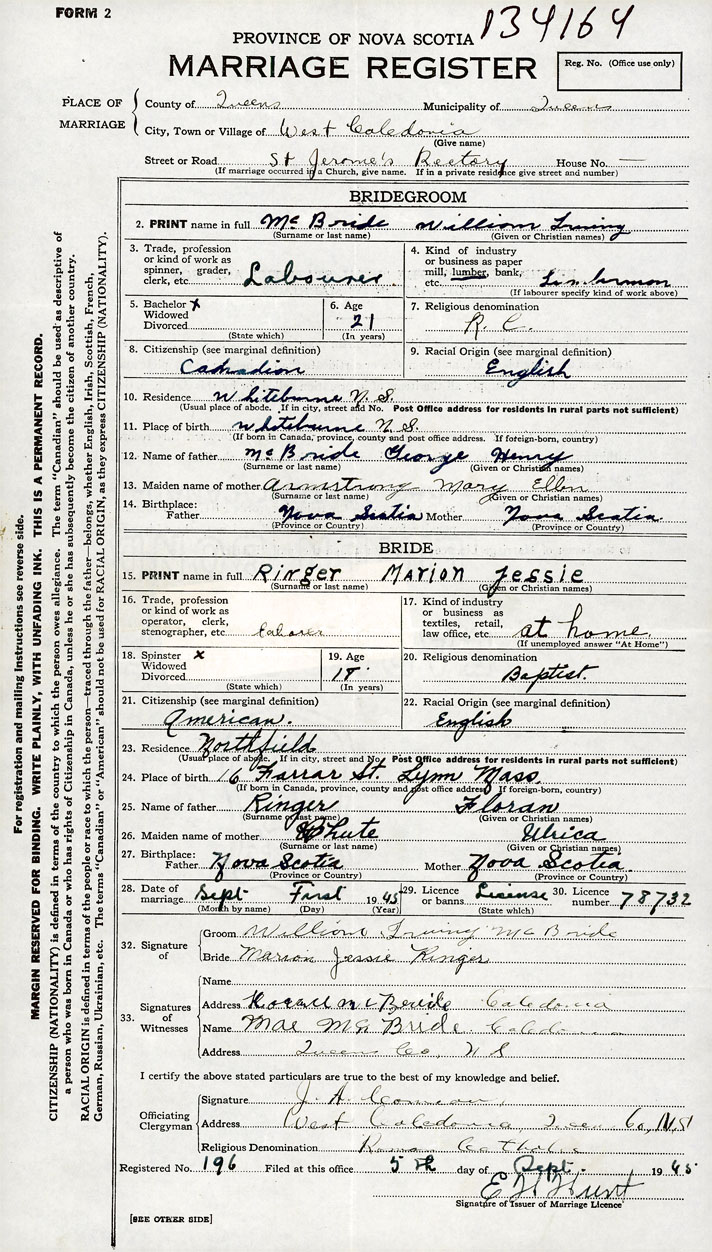 FORM 2
134164
PROVINCE OF NOVA SCOTIA
MARRIAGE REGISTER
Reg. No. (Office use only)
PLACE OF MARRIAGE
County of Queens Municipality of Queens
City, Town or Village of West Caledonia
(Give name)
Street or Road St Jerome's Rectory House No. —
(If marriage occurred in a Church, give name. If in a private residence give street and number)
BRIDEGROOM
2. PRINT name in full Mc Bride William Irving
(Surname or last name) (Given or Christian names)
3. Trade, profession or kind of work as spinner, grader, clerk, etc. Labourer
4. Kind of industry or business as paper mill, lumber, bank, etc.
(If labourer specify kind of work above)
5. Bachelor x
Widowed
Divorced
(State which)
6. Age 21
(In years)
7. Religious denomination R. C.
8. Citizenship (see marginal definition) Canadian
9. Racial Origin (see marginal definition) English
10. Residence Whiteburne N. S.
(Usual place of abode. If in city, street and No. Post Office address for residents in rural parts not sufficient)
11. Place of birth Whiteburne N. S.
(If born in Canada, province, county and post office address. If foreign-born, country)
12. Name of father McBride George Henry
(Surname or last name) (Given or Christian names)
13. Maiden name of mother Armstrong Mary Ellen
(Surname or last name) (Given or Christian names)
14. Birthplace: Father Nova Scotia Mother Nova Scotia
(Province or Country) (Province or Country)
BRIDE
15. PRINT name in full Ringer Marion Jessie
(Surname or last name) (Given or Christian names)
16. Trade, profession or kind of work as operator, clerk, stenographer, etc.
17. Kind of industry or business as textiles, retail, law office, etc. at home
(If unemployed answer "At Home")
18. Spinster x
Widowed
Divorced
(State which)
19. Age
(In years)
20. Religious denomination Baptist.
21. Citizenship (see marginal definition) American.
22. Racial Origin (see marginal definition) English
23. Residence Northfield
(Usual place of abode. If in city, street and No. Post Office address for residents in rural parts not sufficient)
24. Place of birth 16 Farrar St. Lynn Mass.
(If born in Canada, province, county and post office address. If foreign-born, country)
25. Name of father Ringer Floran
(Surname or last name) (Given or Christian names)
26. Maiden name of mother Ulrica
(Surname or last name) (Given or Christian names)
27. Birthplace: Father Nova Scotia Mother Nova Scotia.
(Province or Country) (Province or Country)
28. Date of marriage Sept First 1945 29. Licence or banns. License 30. Licence number 78732
(Month by name) (Day) (Year) (State which)
32. Signature of
Groom William Irving McBride
Bride Marion Jessie Ringer
33. Signatures of Witnesses
Name
Address McBride Caledonia
Name Mae McBride Caledonia
Address Queens Co, N S
I certify the above stated particulars are true to the best of my knowledge and belief.
Officiating Clergyman
Signature J. A.
Address West Caledonia, Queens Co, N.S.
Religious Denomination Roman Catholic
Registered No. 196 Filed at this office 5th day of Sept. 1945
E H Hunt
Signature of Issuer of Marriage Licence
[SEE OTHER SIDE]
For registration and mailing Instructions see reverse side.
MARGIN RESERVED FOR BINDING. WRITE PLAINLY, WITH UNFADING INK. THIS IS A PERMANENT RECORD.
CITIZENSHIP (NATIONALITY) is defined in terms of the country to which the person owes allegiance. The term "Canadian" should be used as descriptive of
a person who was born in Canada or who has rights of Citizenship in Canada, unless he or she has subsequently become the citizen of another country.
RACIAL ORIGIN is defined in terms of the people or race to which the person—traced through the father—belongs, whether English, Irish, Scottish, French,
German, Russian, Ukrainian, etc. The terms "Canadian" or "American" should not be used for RACIAL ORIGIN, as they express CITIZENSHIP (NATIONALITY).